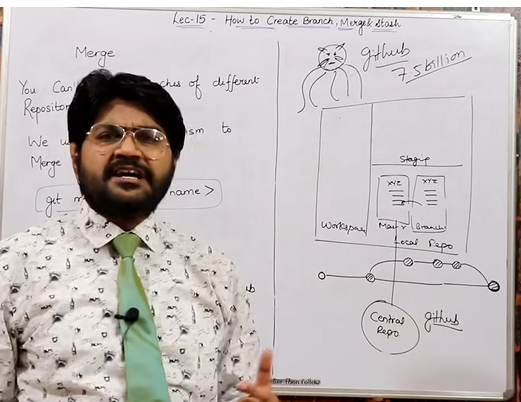 Lec-15 - How to Create Branch, Merge & Stash
Merge
You Can't ches of different
Repositor
We u ism to
Merge
git m name >
github
7.5 billion
Staging
XYZ XYZ
Workspace Branch
Local Repo
Central
Repo
github